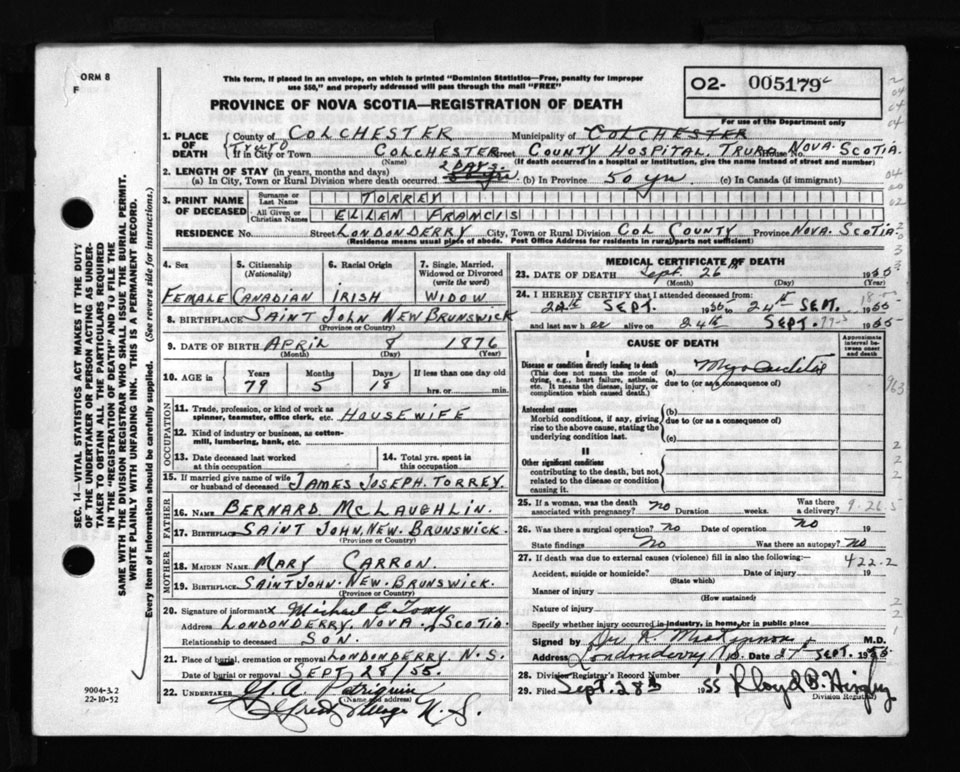 ORM 8
F
This form, if placed in an envelope, on which is printed "Dominion Statistics—Free, penalty for improper
use $50," and properly addressed will pass through the mail "FREE"
PROVINCE OF NOVA SCOTIA—REGISTRATION OF DEATH
O2- 005179
For use of the Department only
1. PLACE OF DEATH
County of COLCHESTER Municipality of COLCHESTER
TRURO
If in City or Town COLCHESTER Street COUNTY HOSPITAL, TRURO House No. NOVA SCOTIA.
(Name) (If death occurred in a hospital or institution, give the name instead of street and number)
2. LENGTH OF STAY (in years, months and days)
(a) In City, Town or Rural Division where death occurred 2 DAYS. (b) In Province 50 yrs (c) In Canada (if immigrant)
3. PRINT NAME OF DECEASED
Surname or Last Name TORREY
All Given or Christian Names ELLEN FRANCIS
RESIDENCE No. Street LONDONDERRY City, Town or Rural Division COL COUNTY Province NOVA SCOTIA
(Residence means usual place of abode. Post Office Address for residents in rural parts not sufficient)
4. Sex
FEMALE
5. Citizenship
(Nationality)
CANADIAN
6. Racial Origin
IRISH
7. Single, Married, Widowed or Divorced
(write the word)
WIDOW
8. BIRTHPLACE SAINT JOHN NEW BRUNSWICK
(Province or Country)
9. DATE OF BIRTH APRIL 8 1876
(Month) (Day) (Year)
10. AGE in Years Months Days If less than one day old
79 5 18 hrs. or min.
OCCUPATION
11. Trade, profession, or kind of work as spinner, teamster, office clerk, etc. HOUSEWIFE
12. Kind of industry or business, as cotton-mill, lumbering, bank, etc.
13. Date deceased last worked at this occupation
14. Total yrs. spent in this occupation
15. If married give name of wife or husband of deceased JAMES JOSEPH TORREY.
FATHER
16. NAME BERNARD MCLAUGHLIN.
17. BIRTHPLACE SAINT JOHN, NEW. BRUNSWICK.
(Province or Country)
MOTHER
18. MAIDEN NAME MARY CARRON.
19. BIRTHPLACE SAINT JOHN. NEW. BRUNSWICK.
(Province or Country)
20. Signature of informant x Michael C Torrey
Address LONDONDERRY, NOVA. SCOTIA.
Relationship to deceased SON.
21. Place of burial, cremation or removal LONDONDERRY, N.S.
Date of burial or removal SEPT 28/55.
22. UNDERTAKER G. A.
(Name and address)
Village N.S.
MEDICAL CERTIFICATE OF DEATH
23. DATE OF DEATH Sept. 26th 1955
(Month) (Day) (Year)
24. I HEREBY CERTIFY that I attended deceased from:
SEPT. 1955 to 24th SEPT. 1955
and last saw h er alive on 24th SEPT. 1955
CAUSE OF DEATH
Approximate interval between onset and death
I
Disease or condition directly leading to death
(This does not mean the mode of dying, e.g., heart failure, asthenia, etc. It means the disease, injury, or complication which caused death.)
(a) Myocarditis
due to (or as a consequence of)
Antecedent causes
Morbid conditions, if any, giving rise to the above cause, stating the underlying condition last.
(b)
due to (or as a consequence of)
(c)
II
Other significant conditions
contributing to the death, but not related to the disease or condition causing it.
25. If a woman, was the death associated with pregnancy? NO Duration weeks. Was there a delivery?
9.26.5
26. Was there a surgical operation? NO Date of operation NO 19
State findings NO Was there an autopsy? NO
27. If death was due to external causes (violence) fill in also the following:—
422.2
Accident, suicide or homicide? Date of injury 19
(State which)
Manner of injury
(How sustained)
Nature of injury
Specify whether injury occurred in industry, in home, or in public place
Signed by Dr. R. MacKinnon M.D.
Address Londonderry N.S. Date 27th SEPT. 1955
28. Division Registrar's Record Number
29. Filed Sept. 28th 1955 Lloyd B.
Division Registrar
SEC. 14—VITAL STATISTICS ACT MAKES IT THE DUTY
OF THE UNDERTAKER OR PERSON ACTING AS UNDER-
TAKER TO OBTAIN ALL THE PARTICULARS REQUIRED
IN THE "REGISTRATION OF DEATH" AND TO FILE THE
SAME WITH THE DIVISION REGISTRAR WHO SHALL ISSUE THE BURIAL PERMIT.
WRITE PLAINLY WITH UNFADING INK. THIS IS A PERMANENT RECORD.
Every item of information should be carefully supplied. (See reverse side for instructions.)
9004-3.2
22-10-52